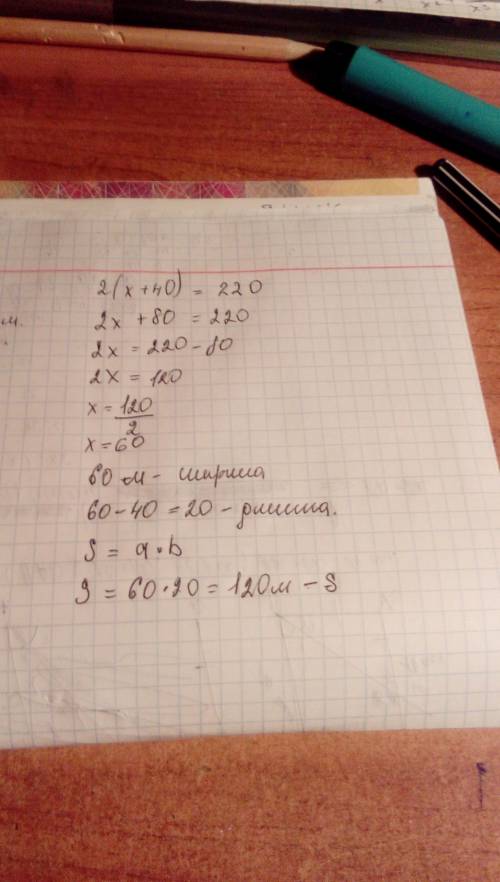 2(x+40) = 220
м.
2x + 80 = 220
2x = 220 - 80
2x = 120
x = 120/2
x = 60
60 м - ширина
60 - 40 = 20 - длинна.
S = a · b
S = 60 · 20 = 120м - S